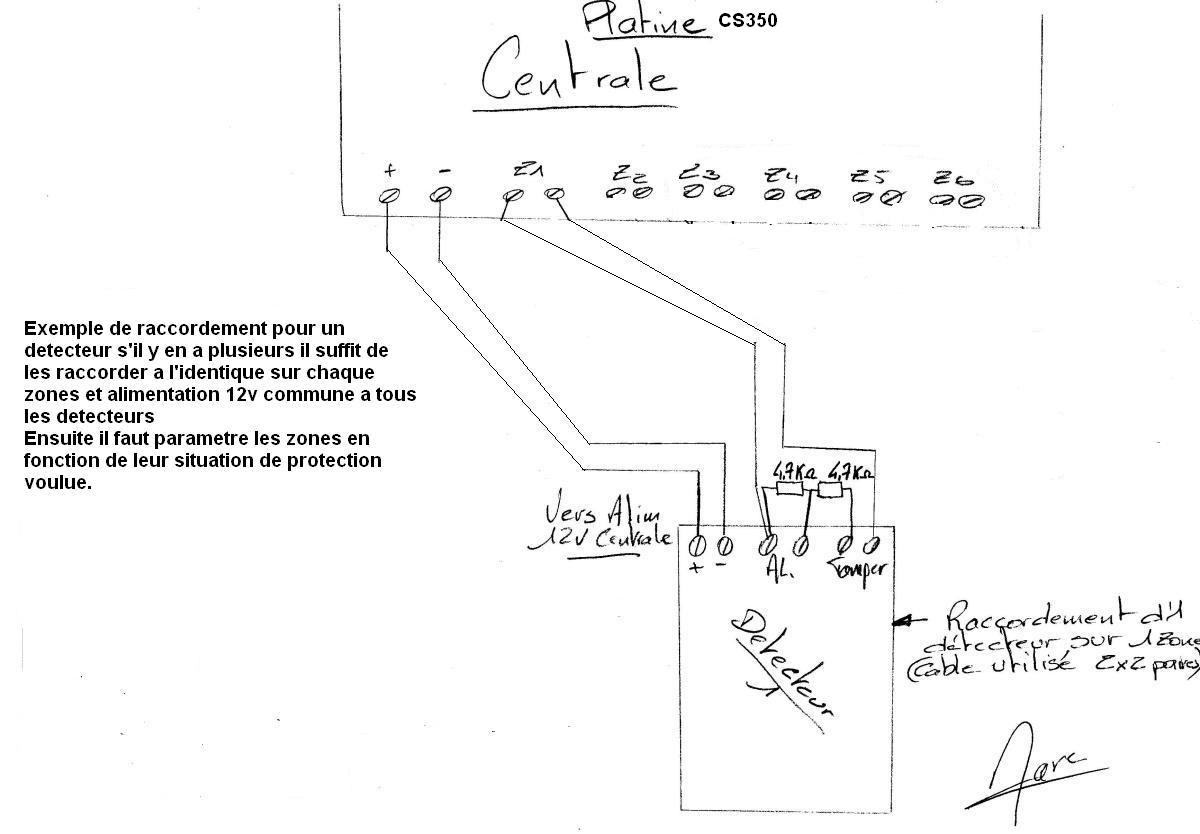 Platine CS350
Centrale
+ - Z1 Z2 Z3 Z4 Z5 Z6
Exemple de raccordement pour un
detecteur s'il y en a plusieurs il suffit de
les raccorder a l'identique sur chaque
zones et alimentation 12v commune a tous
les detecteurs
Ensuite il faut parametre les zones en
fonction de leur situation de protection
voulue.
4,7KΩ 4,7KΩ
Vers Alim
12V Centrale
+ - AL. Tamper
Détecteur
1
Raccordement d'1
détecteur sur 1 Zone
(Cable utilisé 2x2 paires)
Marc